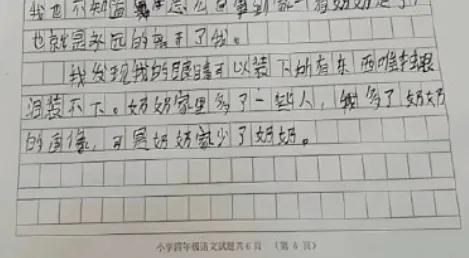 我也不知道
也就是永远的离开了我。
我发现我的眼睛可以装下所有东西唯独眼
泪装不下。奶奶家里多了一些人，多了奶奶
的画像，可是奶奶家少了奶奶。
小学四年级语文试题共6页 （第6页）